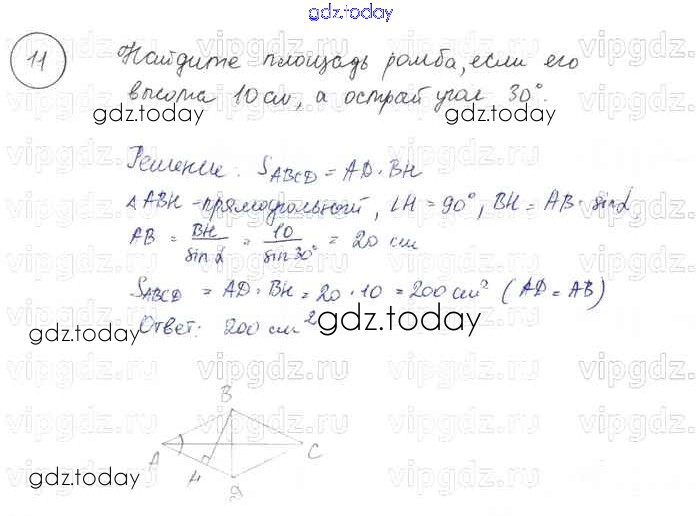 gdz.today
11 Найдите площадь ромба, если его
высота 10 см, а острый угол 30°.
gdz.today gdz.today
Решение: S_ABCD = AD · BH
△ABH - прямоугольный, ∠H = 90°, BH = AB · sin α,
AB = BH / sin α = 10 / sin 30° = 20 см
S_ABCD = AD · BH = 20 · 10 = 200 см² (AD = AB)
Ответ: 200 см²
gdz.today gdz.today
vipgdz.ru vipgdz.ru vipgdz.ru
B
A C
H
Д
gdz.today gdz.today